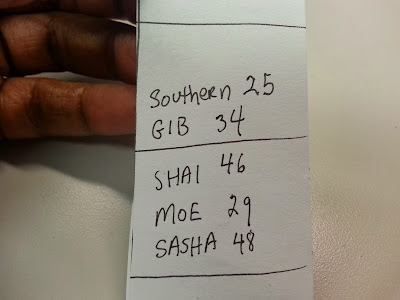 Southern 25
GIB 34
SHAI 46
MOE 29
SASHA 48